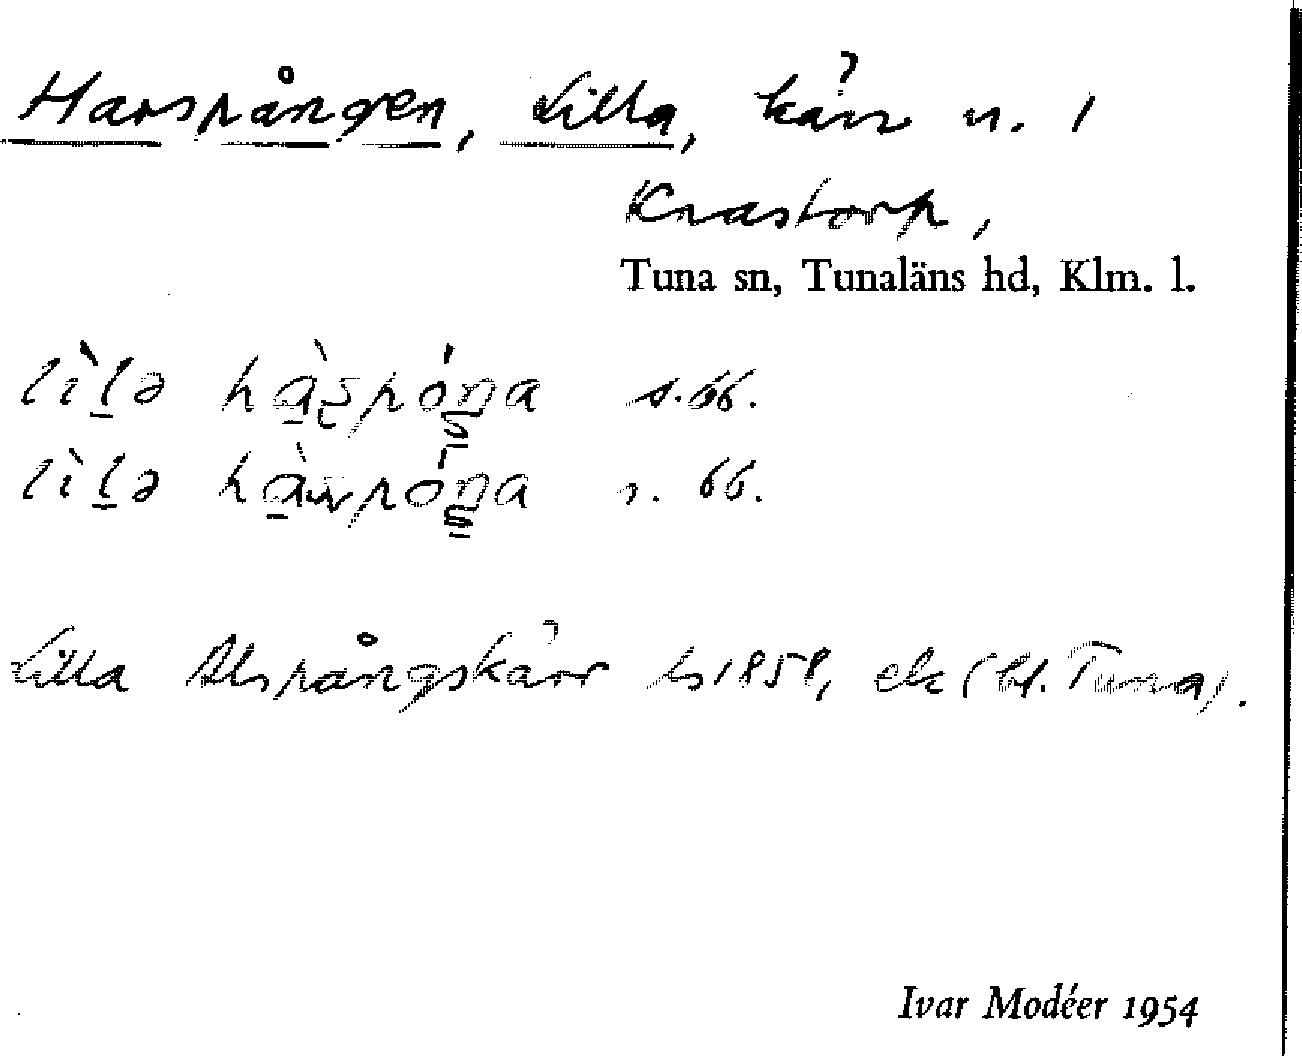 Harspången, Lilla, kärr n. 1
Krastorp,
Tuna sn, Tunaläns hd, Klm. l.
lìl̠ə hà̠s̨póŋ̠a s. 66.
lìl̠ə póŋ̠a 66.
Lilla Alspångskärr ls 1858, ek (bl. Tuna).
Ivar Modéer 1954